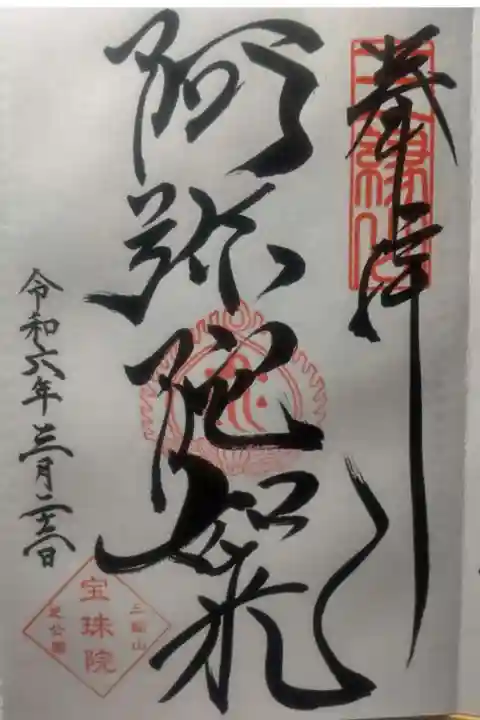 奉拝
阿弥陀如来
令和六年三月二十二日
三縁山
宝珠院
芝公園